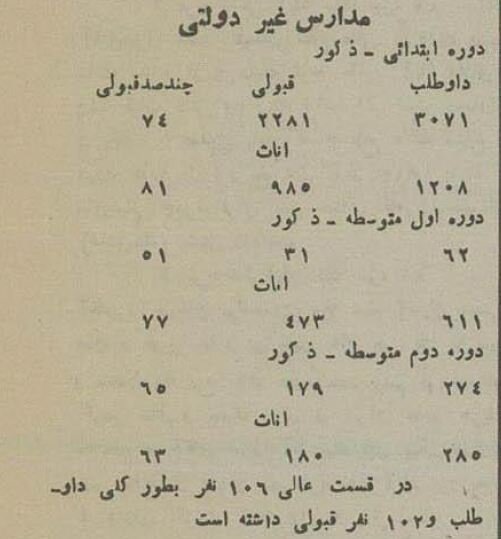 مدارس غیر دولتی
دوره ابتدائی ـ ذکور
داوطلب قبولی چندصدقبولی
۳۰۷۱ ۲۲۸۱ ۷٤
اناث
۱۲۰۸ ۹۸۵ ۸۱
دوره اول متوسطه ـ ذکور
۶۲ ۳۱ ۵۱
اناث
۶۱۱ ٤۷۳ ۷۷
دوره دوم متوسطه ـ ذکور
۲۷٤ ۱۷۹ ۶۵
اناث
۲۸۵ ۱۸۰ ۶۳
در قسمت عالی ۱۰۶ نفر بطور کلی داو-
طلب و ۱۰۲ نفر قبولی داشته است